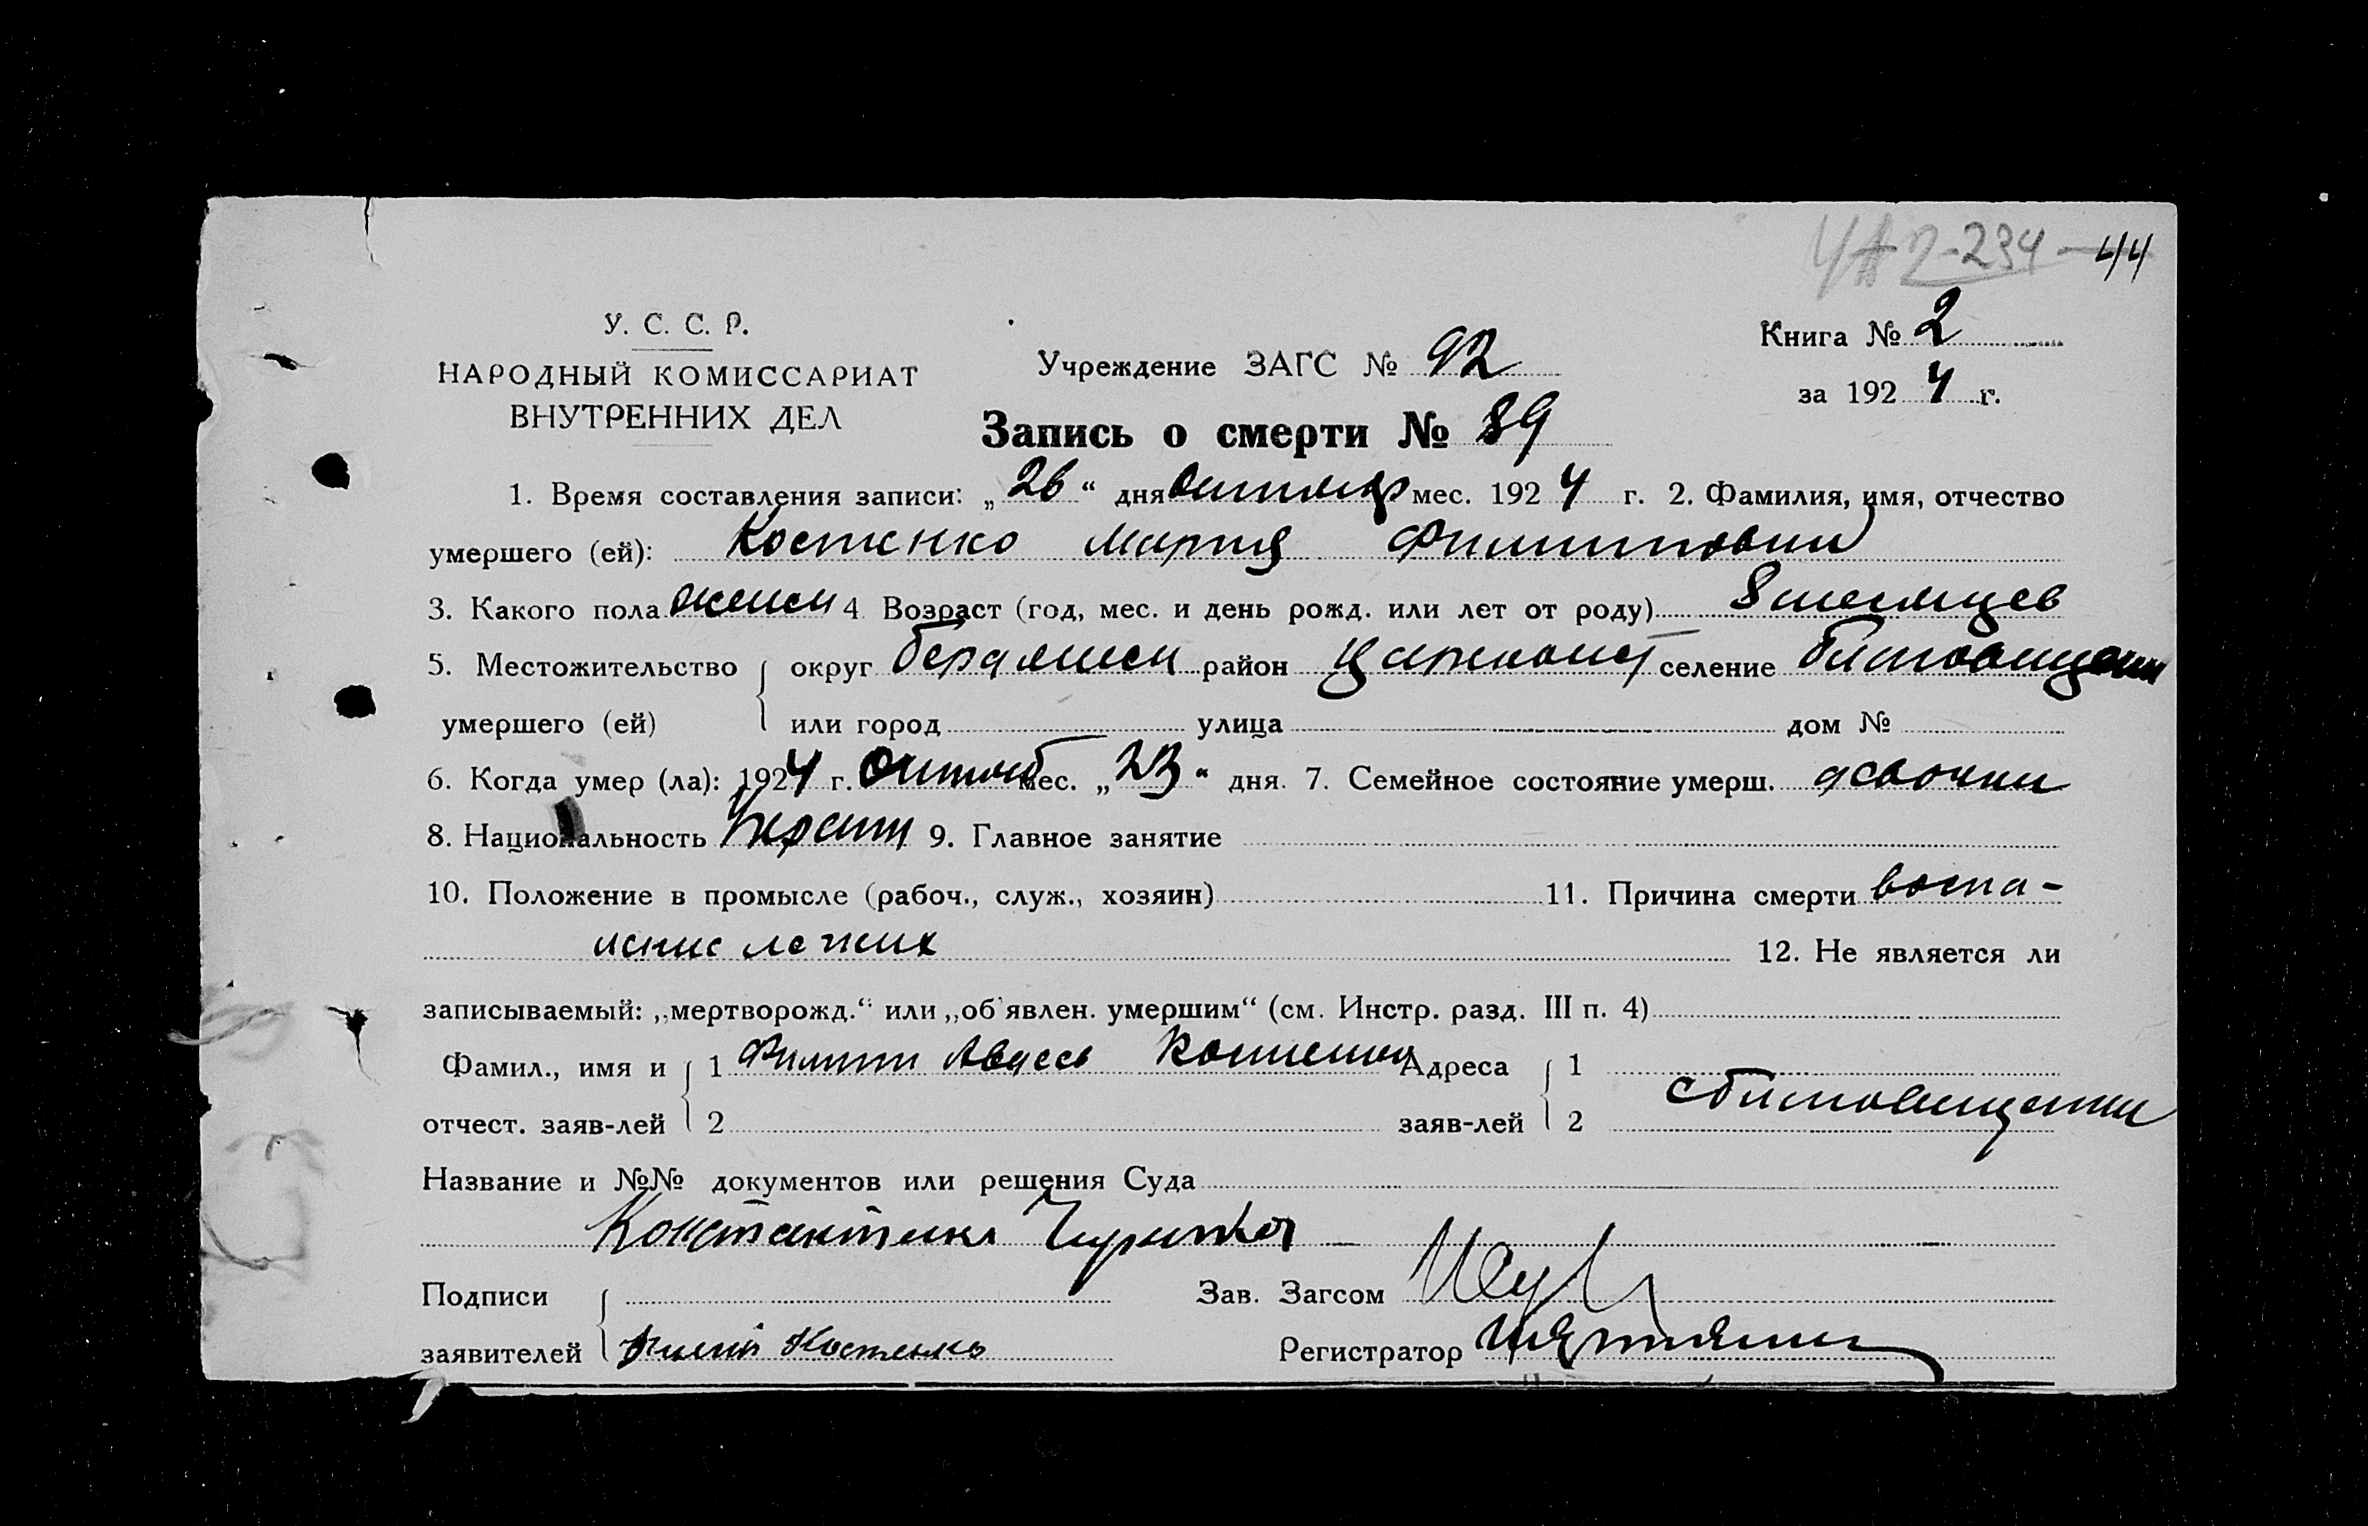 УА 2-234 44
У. С. С. Р.
НАРОДНЫЙ КОМИССАРИАТ
ВНУТРЕННИХ ДЕЛ
Учреждение ЗАГС № 92
Книга № 2
за 1924 г.
Запись о смерти № 89
1. Время составления записи: „26“ дня октябр мес. 1924 г. 2. Фамилия, имя, отчество
умершего (ей): Костенко Мария Филиповна
3. Какого пола женск 4 Возраст (год, мес. и день рожд. или лет от роду) 8 месяцев
5. Местожительство округ бердянск район селение
умершего (ей) или город улица дом №
6. Когда умер (ла): 1924 г. Октяб мес. „23“ дня. 7. Семейное состояние умерш. девочка
8. Национальность Украин 9. Главное занятие
10. Положение в промысле (рабоч., служ., хозяин) 11. Причина смерти воспа-
ление легких
12. Не является ли
записываемый: „мертворожд.“ или „об'явлен. умершим“ (см. Инстр. разд. III п. 4)
Фамил., имя и 1 Филипп Авдеев Костенко Адреса 1
отчест. заяв-лей 2 заяв-лей 2
Название и №№ документов или решения Суда
Подписи Зав. Загсом
заявителей Костенко Регистратор